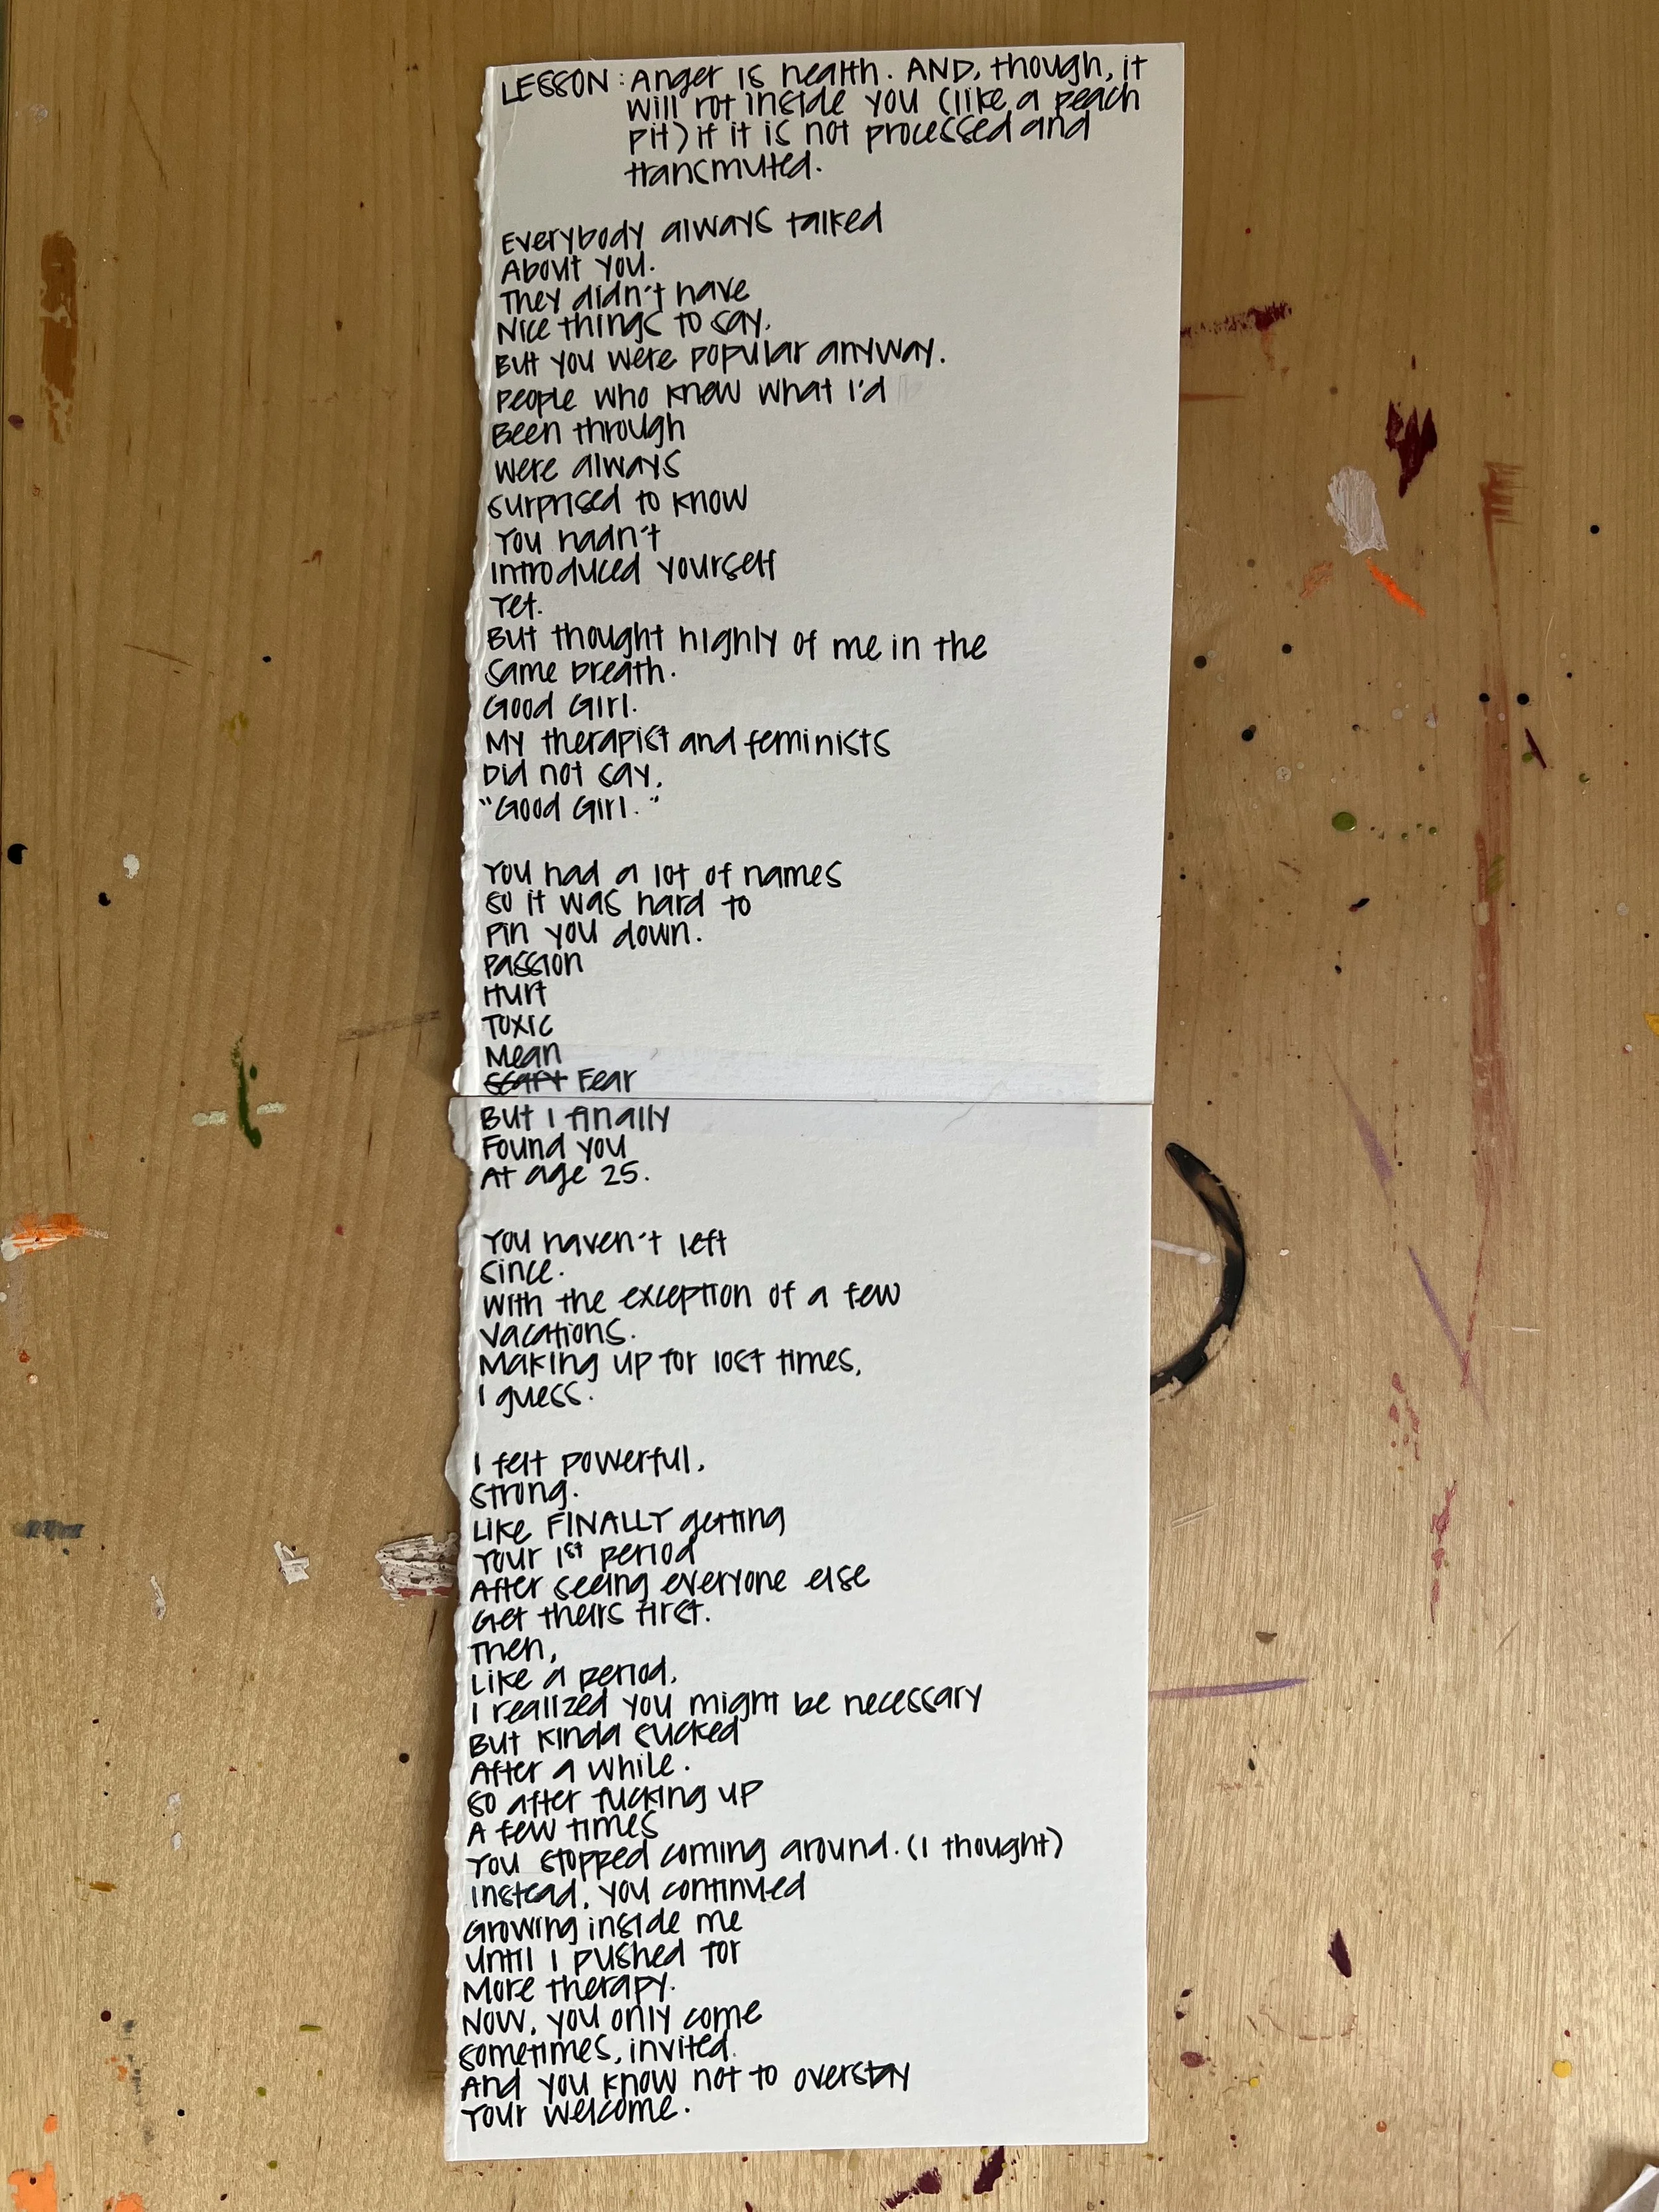 LESSON: Anger is health. AND, though, it
will rot inside you (like a peach
pit) if it is not processed and
transmuted.
Everybody always talked
About you.
They didn't have
Nice things to say,
But you were popular anyway.
People who knew what I'd
Been through
were always
surprised to know
You hadn't
Introduced yourself
Yet.
But thought highly of me in the
same breath.
Good Girl.
My therapist and feminists
Did not say,
"Good Girl."
You had a lot of names
so it was hard to
Pin you down.
Passion
Hurt
Toxic
Mean
Fear
But I finally
Found you
At age 25.
You haven't left
since.
With the exception of a few
vacations.
Making up for lost times,
I guess.
I felt powerful,
strong.
Like FINALLY getting
Your 1st period
After seeing everyone else
Get theirs first.
Then,
Like a period,
I realized you might be necessary
But kinda sucked
After a while.
So after fucking up
A few times
You stopped coming around. (I thought)
Instead, you continued
Growing inside me
Until I pushed for
More therapy.
Now, you only come
sometimes, invited.
And you know not to overstay
Your welcome.